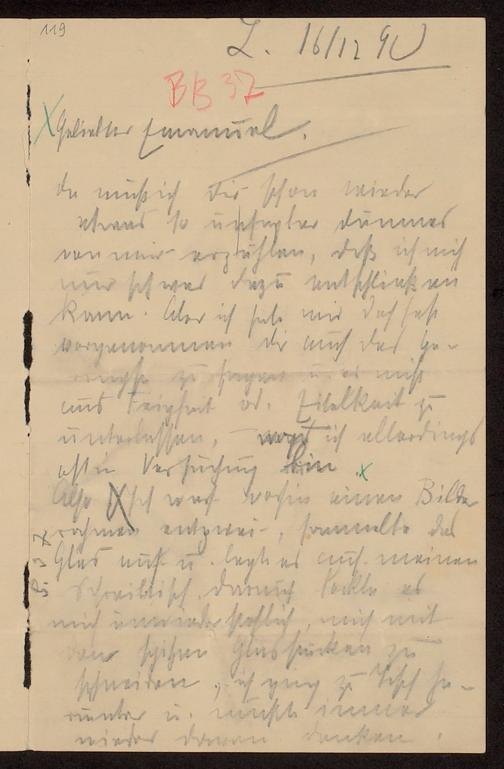 119
L. 16/12 90
BB 37
Geliebter Emanuel.
da muß ich dir schon wieder
etwas so unsagbar dummes
von mir erzählen, daß ich mich
nur schwer dazu entschließen
kann. Aber ich habe mir doch fest
vorgenommen dir auch das Ge-
ringste zu sagen u. es nicht
aus Feigheit od. Eitelkeit zu
unterlassen, wozu ich allerdings
oft in Versuchung bin.
Also ich warf vorhin einen Bilder
rahmen entzwei, sammelte das
Glas auf u. legte es auf meinen
Schreibtisch. darauf lockte es
mich unwiderstehlich, mich mit
den spitzen Glasstücken zu
schneiden, ich ging zu Tisch he-
runter u. mußte immer
wieder daran denken.